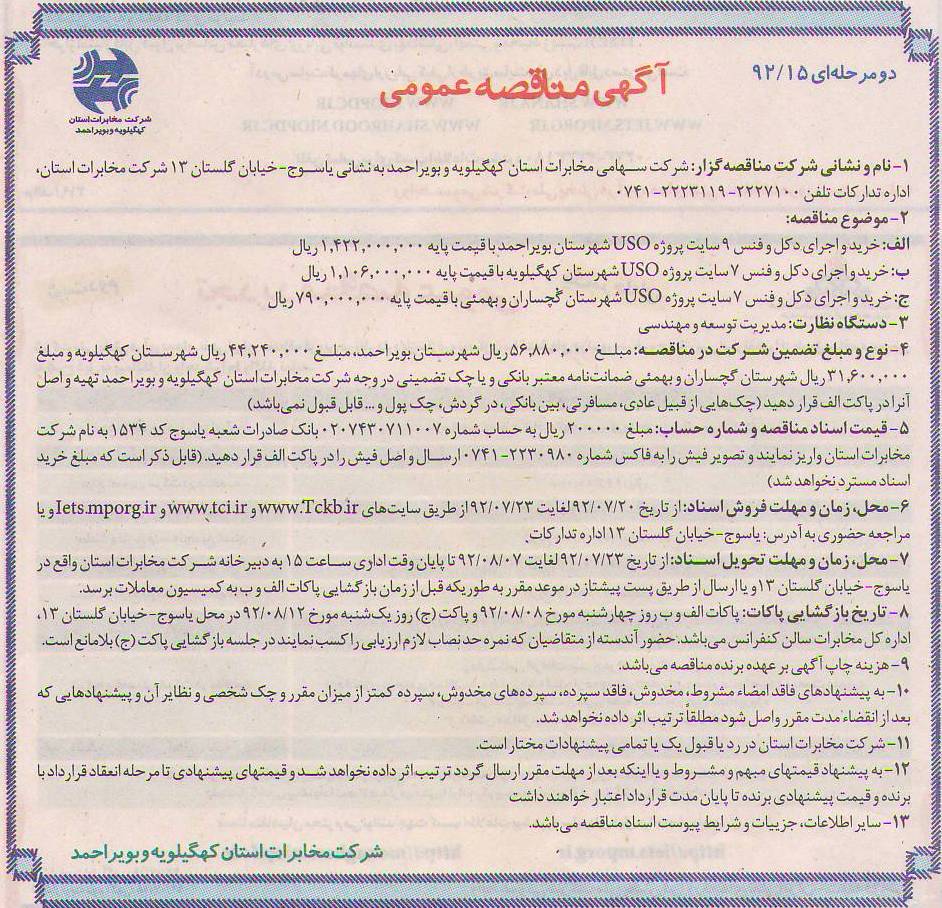 دو مرحله‌ای ۹۲/۱۵
آگهی مناقصه عمومی
شرکت مخابرات استان
کهگیلویه و بویراحمد
۱- نام و نشانی شرکت مناقصه گزار: شرکت سهامی مخابرات استان کهگیلویه و بویراحمد به نشانی یاسوج - خیابان گلستان ۱۳ شرکت مخابرات استان،
اداره تدارکات تلفن ۲۲۲۷۱۰۰-۲۲۲۳۱۱۹-۰۷۴۱
۲- موضوع مناقصه:
الف: خرید و اجرای دکل و فنس ۹ سایت پروژه USO شهرستان بویراحمد با قیمت پایه ۱,۴۲۲,۰۰۰,۰۰۰ ریال
ب: خرید و اجرای دکل و فنس ۷ سایت پروژه USO شهرستان کهگیلویه با قیمت پایه ۱,۱۰۶,۰۰۰,۰۰۰ ریال
ج: خرید و اجرای دکل و فنس ۷ سایت پروژه USO شهرستان گچساران و بهمئی با قیمت پایه ۷۹۰,۰۰۰,۰۰۰ ریال
۳- دستگاه نظارت: مدیریت توسعه و مهندسی
۴- نوع و مبلغ تضمین شرکت در مناقصه: مبلغ ۵۶,۸۸۰,۰۰۰ ریال شهرستان بویراحمد، مبلغ ۴۴,۲۴۰,۰۰۰ ریال شهرستان کهگیلویه و مبلغ
۳۱,۶۰۰,۰۰۰ ریال شهرستان گچساران و بهمئی ضمانت‌نامه معتبر بانکی و یا چک تضمینی در وجه شرکت مخابرات استان کهگیلویه و بویراحمد تهیه و اصل
آنرا در پاکت الف قرار دهید (چک‌هایی از قبیل عادی، مسافرتی، بین بانکی، در گردش، چک پول و... قابل قبول نمی‌باشد)
۵- قیمت اسناد مناقصه و شماره حساب: مبلغ ۲۰۰۰۰۰ ریال به حساب شماره ۰۲۰۷۴۳۰۷۱۱۰۰۷ بانک صادرات شعبه یاسوج کد ۱۵۳۴ به نام شرکت
مخابرات استان واریز نمایند و تصویر فیش را به فاکس شماره ۲۲۳۰۹۸۰-۰۷۴۱ ارسال و اصل فیش را در پاکت الف قرار دهید. (قابل ذکر است که مبلغ خرید
اسناد مسترد نخواهد شد)
۶- محل، زمان و مهلت فروش اسناد: از تاریخ ۹۲/۰۷/۲۰ لغایت ۹۲/۰۷/۲۳ از طریق سایت‌های www.Tckb.ir و www.tci.ir و Iets.mporg.ir و یا
مراجعه حضوری به آدرس: یاسوج - خیابان گلستان ۱۳ اداره تدارکات.
۷- محل، زمان و مهلت تحویل اسناد: از تاریخ ۹۲/۰۷/۲۳ لغایت ۹۲/۰۸/۰۷ تا پایان وقت اداری ساعت ۱۵ به دبیرخانه شرکت مخابرات استان واقع در
یاسوج - خیابان گلستان ۱۳ و یا ارسال از طریق پست پیشتاز در موعد مقرر به طوریکه قبل از زمان بازگشایی پاکات الف و ب به کمیسیون معاملات برسد.
۸- تاریخ بازگشایی پاکات: پاکات الف و ب روز چهارشنبه مورخ ۹۲/۰۸/۰۸ و پاکت (ج) روز یک‌شنبه مورخ ۹۲/۰۸/۱۲ در محل یاسوج - خیابان گلستان ۱۳،
اداره کل مخابرات سالن کنفرانس می‌باشد. حضور آندسته از متقاضیان که نمره حد نصاب لازم ارزیابی را کسب نمایند در جلسه بازگشایی پاکت (ج) بلامانع است.
۹- هزینه چاپ آگهی بر عهده برنده مناقصه می‌باشد.
۱۰- به پیشنهادهای فاقد امضاء مشروط، مخدوش، فاقد سپرده، سپرده‌های مخدوش، سپرده کمتر از میزان مقرر و چک شخصی و نظایر آن و پیشنهادهایی که
بعد از انقضاء مدت مقرر واصل شود مطلقاً ترتیب اثر داده نخواهد شد.
۱۱- شرکت مخابرات استان در رد یا قبول یک یا تمامی پیشنهادات مختار است.
۱۲- به پیشنهاد قیمتهای مبهم و مشروط و یا اینکه بعد از مهلت مقرر ارسال گردد ترتیب اثر داده نخواهد شد و قیمتهای پیشنهادی تا مرحله انعقاد قرارداد با
برنده و قیمت پیشنهادی برنده تا پایان مدت قرارداد اعتبار خواهند داشت
۱۳- سایر اطلاعات، جزییات و شرایط پیوست اسناد مناقصه می‌باشد.
شرکت مخابرات استان کهگیلویه و بویراحمد